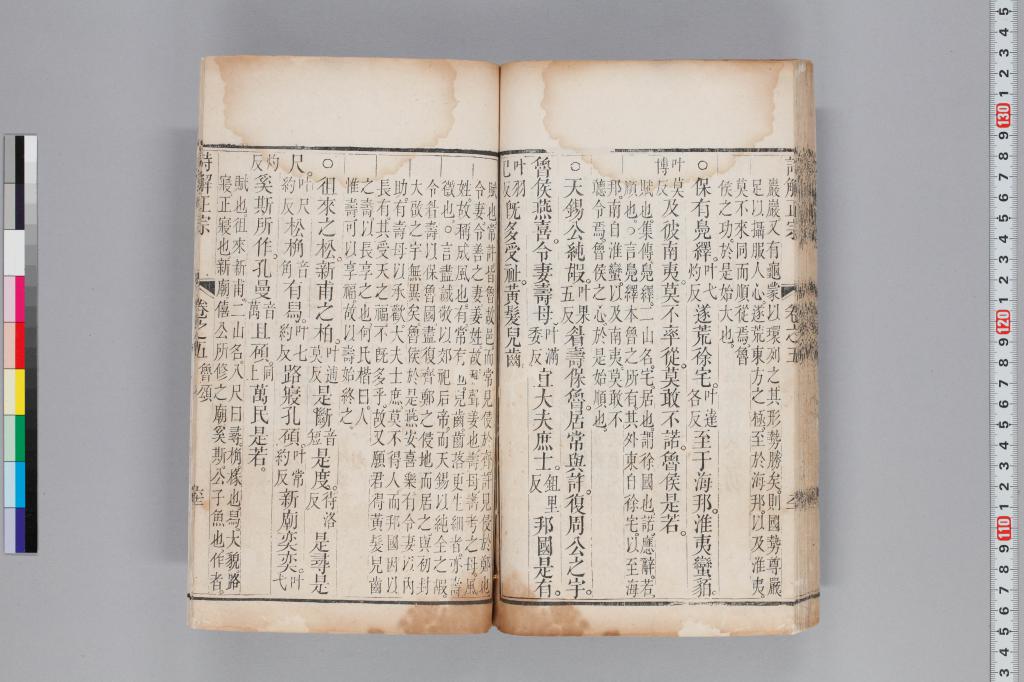 巖巖又有龜蒙以環列之其形勢勝矣則國勢尊嚴
足以攝服人心遂荒東方之極至於海邦以及淮夷
莫不來同而順從焉魯
侯之功於是始大也
○保有鳧繹叶弋灼反遂荒徐宅叶達各反至于海邦淮夷蠻貊
叶莫博反及彼南夷莫不率從莫敢不諾魯侯是若
賦也集傳鳧繹二山名宅居也謂徐國也諾應辭若
順也○言鳧繹本魯之所有其外東自徐宅以至海
邦南自淮蠻以及南夷莫敢不
聽令焉魯侯之心於是始順也
○天錫公純嘏叶果五反眉壽保魯居常與許復周公之宇
魯侯燕喜令妻壽母叶滿委反宜大夫庶士鉏里反邦國是有
叶羽已反既多受祉黃髮兒齒
賦也常許皆魯故邑而常見侵於齊許見侵於鄭也
令妻令善之妻姜姓故曰聲姜也壽母壽考之母風
姓故稱成風也有常有也兒齒齒落更生細者亦壽
徵也○言盡誠敬以郊祀后帝而天錫以純全之嘏
令眉壽以保魯國盡復齊鄭之侵地而居之與初封
大啟之宇無異矣魯侯於是燕安喜樂有令妻以內
助有壽母以承歡大夫士庶莫不得人而邦國因以
長有其受天之福不既多乎故又願君得黃髮兒齒
之壽以長享之也何氏楷曰人
惟壽可以享福故以壽始終之
○徂來之松新甫之柏叶逋莫反是斷音短是度待洛反是尋是
尺叶尺約反松桷音角有舄叶七約反路寢孔碩叶常約反新廟奕奕叶弋
灼反奚斯所作孔曼音萬且碩同上萬民是若
賦也徂來新甫二山名八尺曰尋桷榱也舄大貌路
寢正寢也新廟僖公所修之廟奚斯公子魚也作者
詩解正宗
卷之五 魯頌